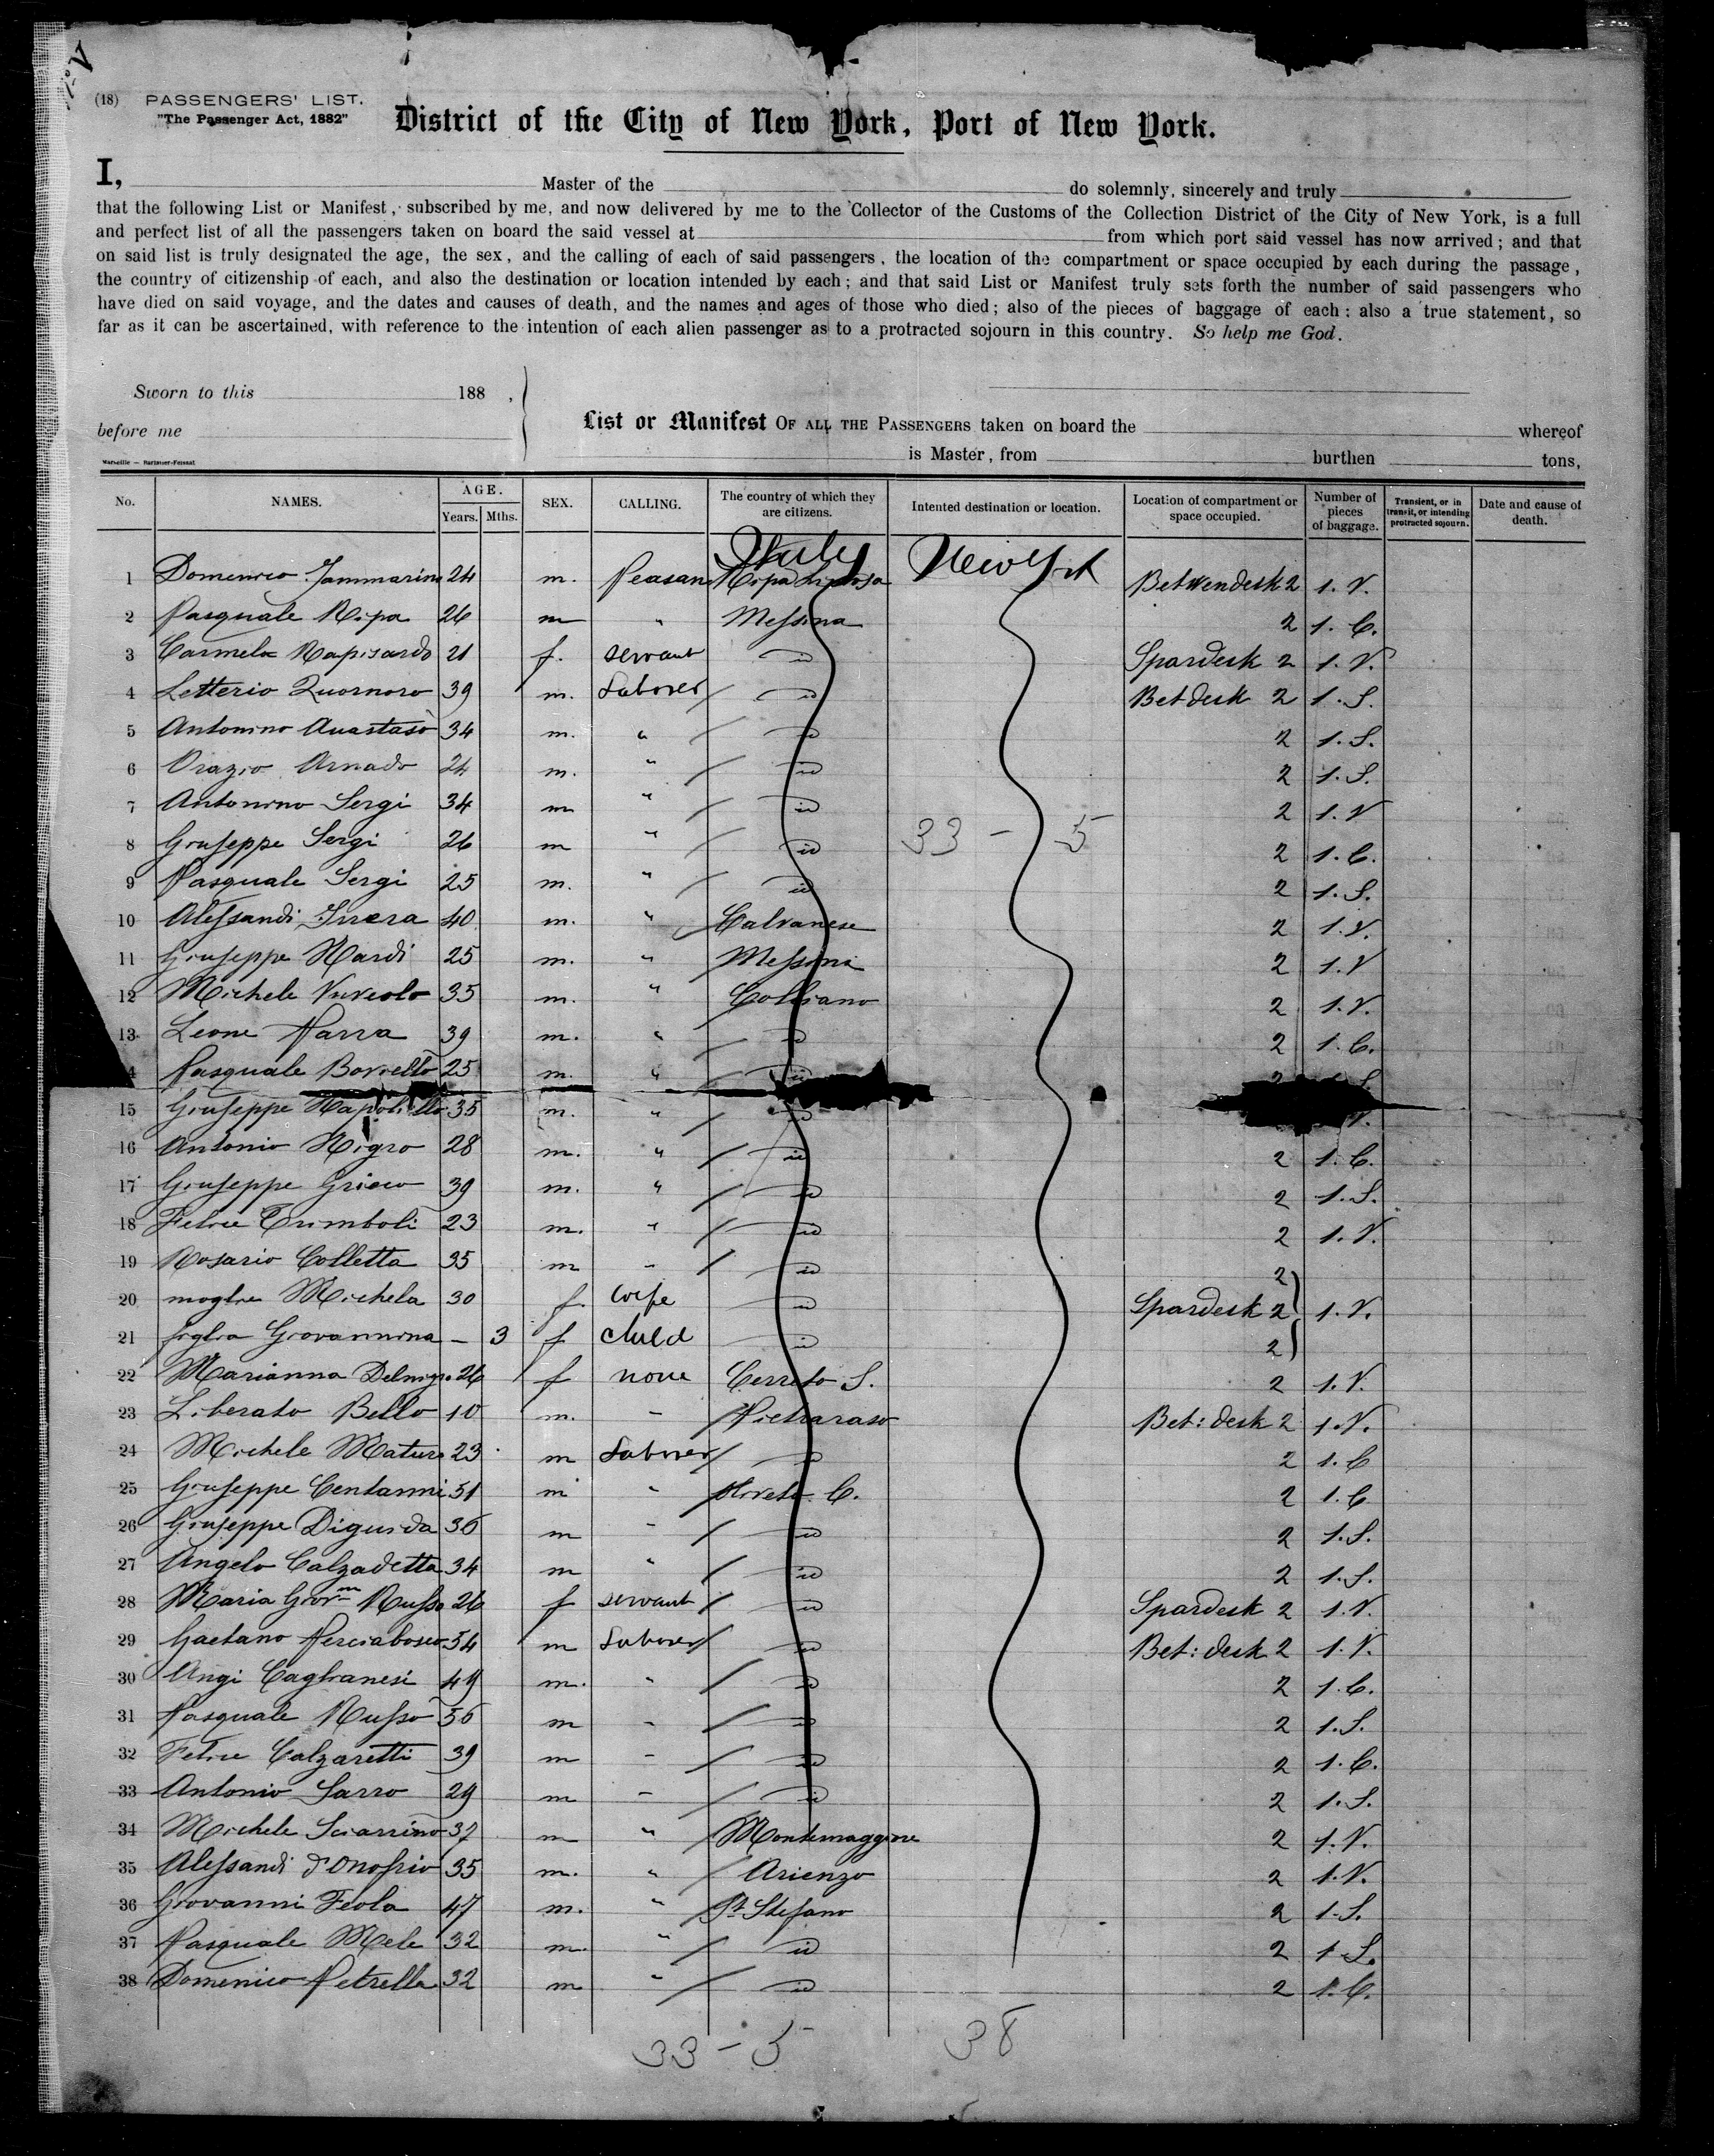 No V
(18) PASSENGERS' LIST.
"The Passenger Act, 1882"
District of the City of New York, Port of New York.
I, Master of the do solemnly, sincerely and truly
that the following List or Manifest, subscribed by me, and now delivered by me to the Collector of the Customs of the Collection District of the City of New York, is a full
and perfect list of all the passengers taken on board the said vessel at from which port said vessel has now arrived; and that
on said list is truly designated the age, the sex, and the calling of each of said passengers, the location of the compartment or space occupied by each during the passage,
the country of citizenship of each, and also the destination or location intended by each; and that said List or Manifest truly sets forth the number of said passengers who
have died on said voyage, and the dates and causes of death, and the names and ages of those who died; also of the pieces of baggage of each: also a true statement, so
far as it can be ascertained, with reference to the intention of each alien passenger as to a protracted sojourn in this country. So help me God.
Sworn to this 188 ,
before me
List or Manifest OF ALL THE PASSENGERS taken on board the whereof
is Master, from burthen tons,
Marseille — Barlatier-Feissat
No. NAMES. AGE. Years. Mths. SEX. CALLING. The country of which they are citizens. Intented destination or location. Location of compartment or space occupied. Number of pieces of baggage. Transient, or in transit, or intending protracted sojourn. Date and cause of death.
Italy New York
1 Domenico Jammarino 24 m. Peasan Ripa Betwendesk 2 1. V.
2 Pasquale Ripa 26 m " Messina 2 1. C.
3 Carmela Rapisardo 21 f. servant id Spardesk 2 1. V.
4 Letterio Quornoro 39 m. Laborer id Bet desk 2 1. S.
5 Antonino Anastaso 34 m. " id 2 1. S.
6 Orazio Arnado 24 m. " id 2 1. S.
7 Antonino Sergi 34 m " id 2 1. V
8 Giuseppe Sergi 26 m " id 33 - 5 2 1. C.
9 Pasquale Sergi 25 m. " id 2 1. S.
10 Alessandi Irrera 40 m. " Calvanese 2 1. V.
11 Giuseppe Nardi 25 m. " Messina 2 1. V
12 Michele 35 m. " Colliano 2 1. V.
13 Leone Parra 39 m. " id 2 1. C.
4 Pasquale Borriello 25 m. " id 2 S.
15 Giuseppe Napolitello 35 m. " id V.
16 Antonio Nigro 28 m. " id 2 1. C.
17 Giuseppe Grieco 39 m. " id 2 1. S.
18 Felice Trimboli 23 m. " id 2 1. V.
19 Rosario Colletta 35 m " id 2
20 moglie Michela 30 f. wife id Spardesk 2 1. V.
21 figlia Giovannina — 3 f child id 2
22 Marianna Delnigro 26 f none Cerreto S. 2 1. V.
23 Liberato Bello 10 m. — Pietraraso Bet: desk 2 1. V.
24 Michele Maturo 23 m Laborer id 2 1. C
25 Giuseppe Centanni 51 m " Oliveto C. 2 1. C
26 Giuseppe Diguida 36 m " id 2 1. S.
27 Angelo Calzadetta 34 m " id 2 1. S.
28 Maria Giovna Russo 26 f servant id Spardesk 2 1. V.
29 Gaetano Perciabosco 54 m Laborer id Bet: desk 2 1. V.
30 Angi Caglianesi 49 m. " id 2 1. C.
31 Pasquale Russo 56 m " id 2 1. S.
32 Felice Calzaretti 39 m " id 2 1. C.
33 Antonio Sarro 29 m — id 2 1. S.
34 Michele Sciarrino 37 m " Montemaggiore 2 1. V.
35 Alessandi d'Onofrio 35 m. " Arienzo 2 1. V.
36 Giovanni Feola 47 m. " St Stefano 2 1. S.
37 Pasquale Mele 32 m. " id 2 1 S.
38 Domenico Petrella 32 m " id 2 1. C.
33 - 5 38